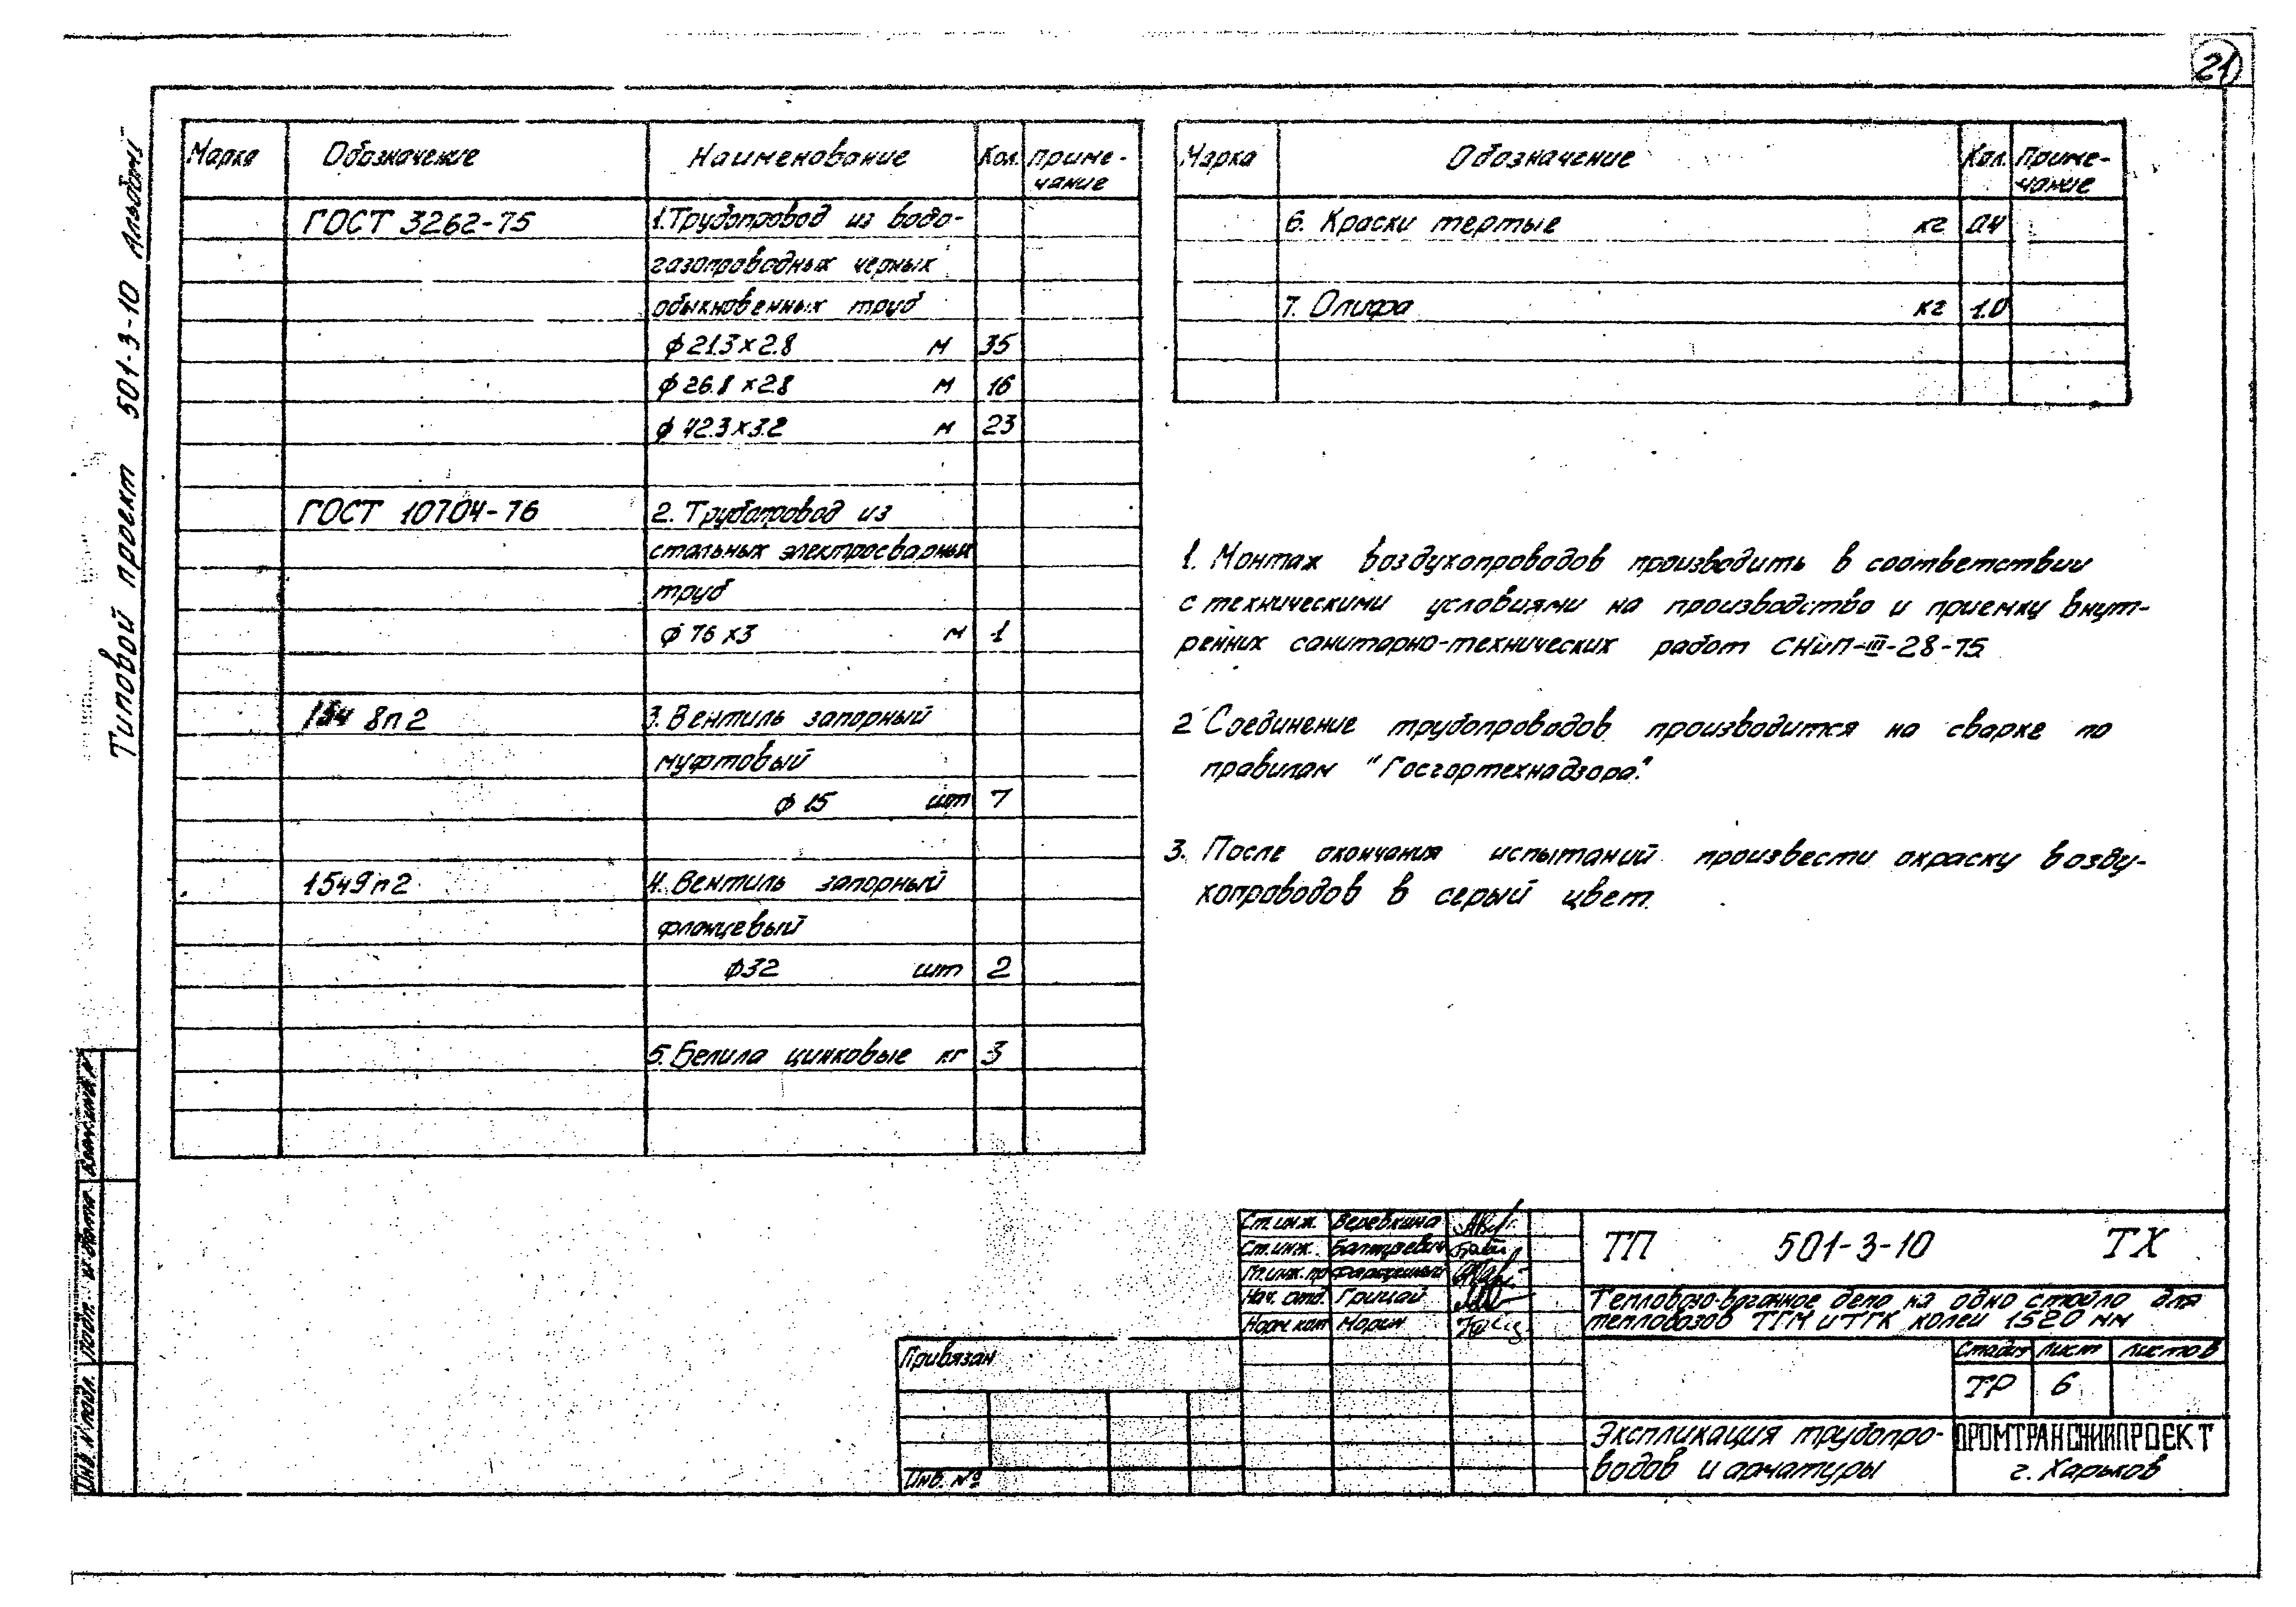 21
Типовой проект 501-3-10 Альбом I
Марка Обозначение Наименование Кол. Приме-
чание
ГОСТ 3262-75 1. Трубопровод из водо-
газопроводных черных
обыкновенных труб
ф 21.3 × 2.8 м 35
ф 26.8 × 2.8 м 16
ф 42.3 × 3.2 м 23
ГОСТ 10704-76 2. Трубопровод из
стальных электросварных
труб
ф 76 × 3 м 1
15ч 8п2 3. Вентиль запорный
муфтовый
ф 15 шт 7
15ч9п2 4. Вентиль запорный
фланцевый
ф32 шт 2
5. Белила цинковые кг 3
Марка Обозначение Кол. Приме-
чание
6. Краски тертые кг 0.4
7. Олифа кг 1.0
1. Монтаж воздухопроводов производить в соответствии
с техническими условиями на производство и приемку внут-
ренних санитарно-технических работ СНиП-III-28-75
2 Соединение трубопроводов производится на сварке по
правилам "Госгортехнадзора".
3. После окончания испытаний произвести окраску возду-
хопроводов в серый цвет.
Ст. инж. Веревкина
Ст. инж.
Гл. инж. пр
Нач. отд. Грицай
Норм. кон Морин
ТП 501-3-10 ТХ
Тепловозо-вагонное депо на одно стойло для
тепловозов ТГМ и ТГК колеи 1520 мм
Стадия Лист Листов
ТР 6
Экспликация трубопро-
водов и арматуры
ПРОМТРАНСНИИПРОЕКТ
г. Харьков
Привязан
Инв. №
Взам. инв. №
Подп. и дата
Инв. № подл.